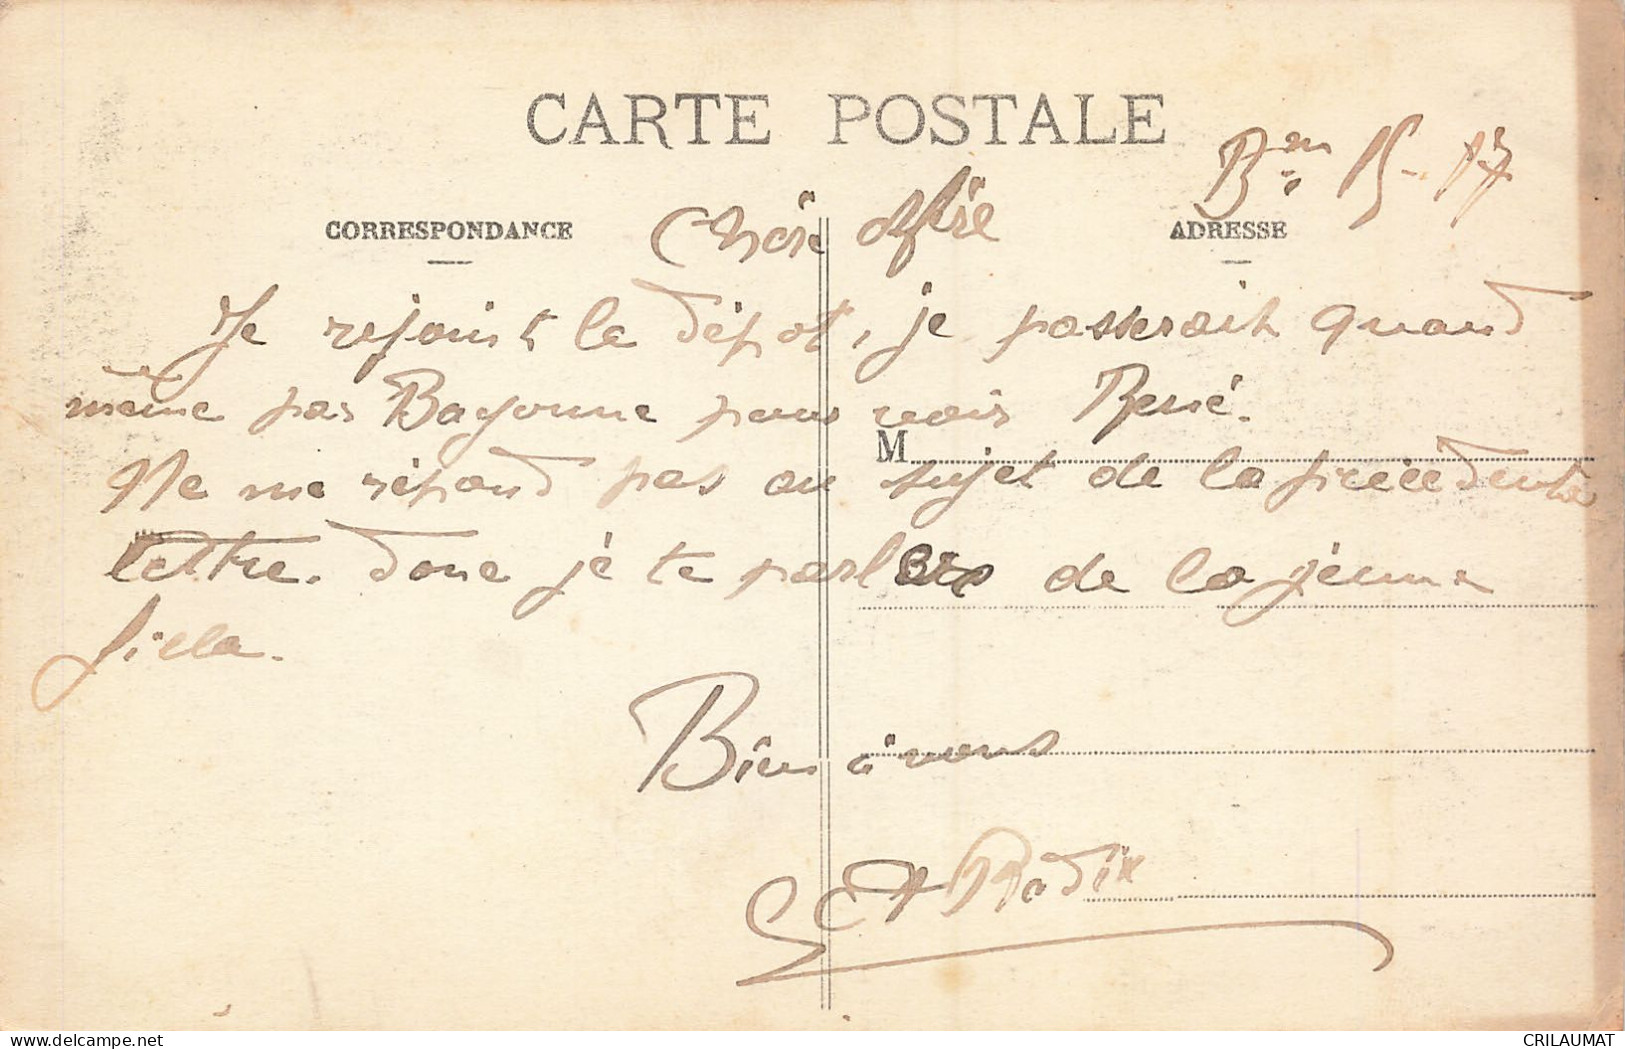 CARTE POSTALE
15-17
CORRESPONDANCE
ADRESSE
Chère
Je rejoint le dépot, je passerait quand
même par Bayonne pour voir René.
M
Ne me répond pas au sujet de la précédente
lettre. donc je te parlais de la jeune
fille.
Bien à vous
CRILAUMAT